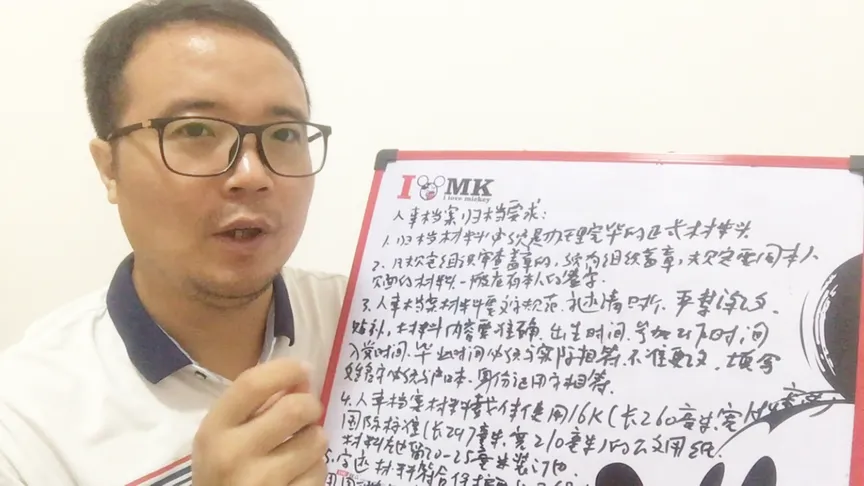 I MK
I love mickey
人事档案归档要求:
1.归档材料必须是办理完毕的正式材料
2、凡规定组织审查盖章的,须有组织盖章,规定要同本人
见面的材料,一般应有本人的签字
3、人事档案材料需文字规范,
材料内容要准确,出生时间、参加工作时间
入党时间、毕业时间必须与实际相符,不准更改,填写
姓名字必须与户口本、身份证用字相符.
4.人事档案材料载体使用16K(长260毫米,宽184毫米)
国际标准(长297毫米,宽210毫米)的公文用纸.
材料左边留20-25毫米装订边
5.字迹材料符合